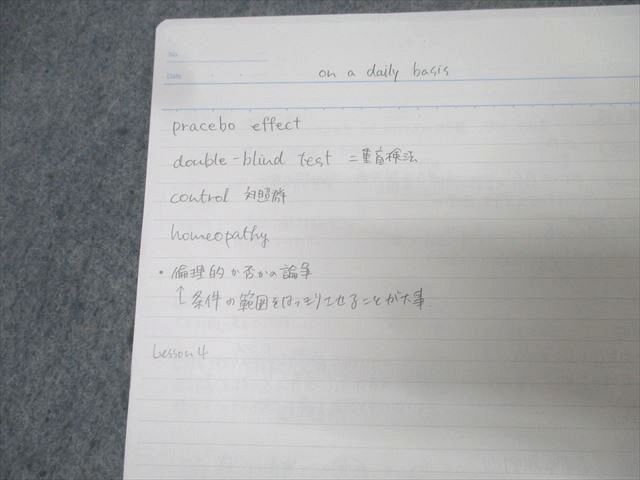 No.
Date
on a daily basis
pracebo effect
double-blind test 二重盲検法
control 対照群
homeopathy
・倫理的か否かの論争
↑条件の範囲をはっきりさせることが大事
Lesson 4